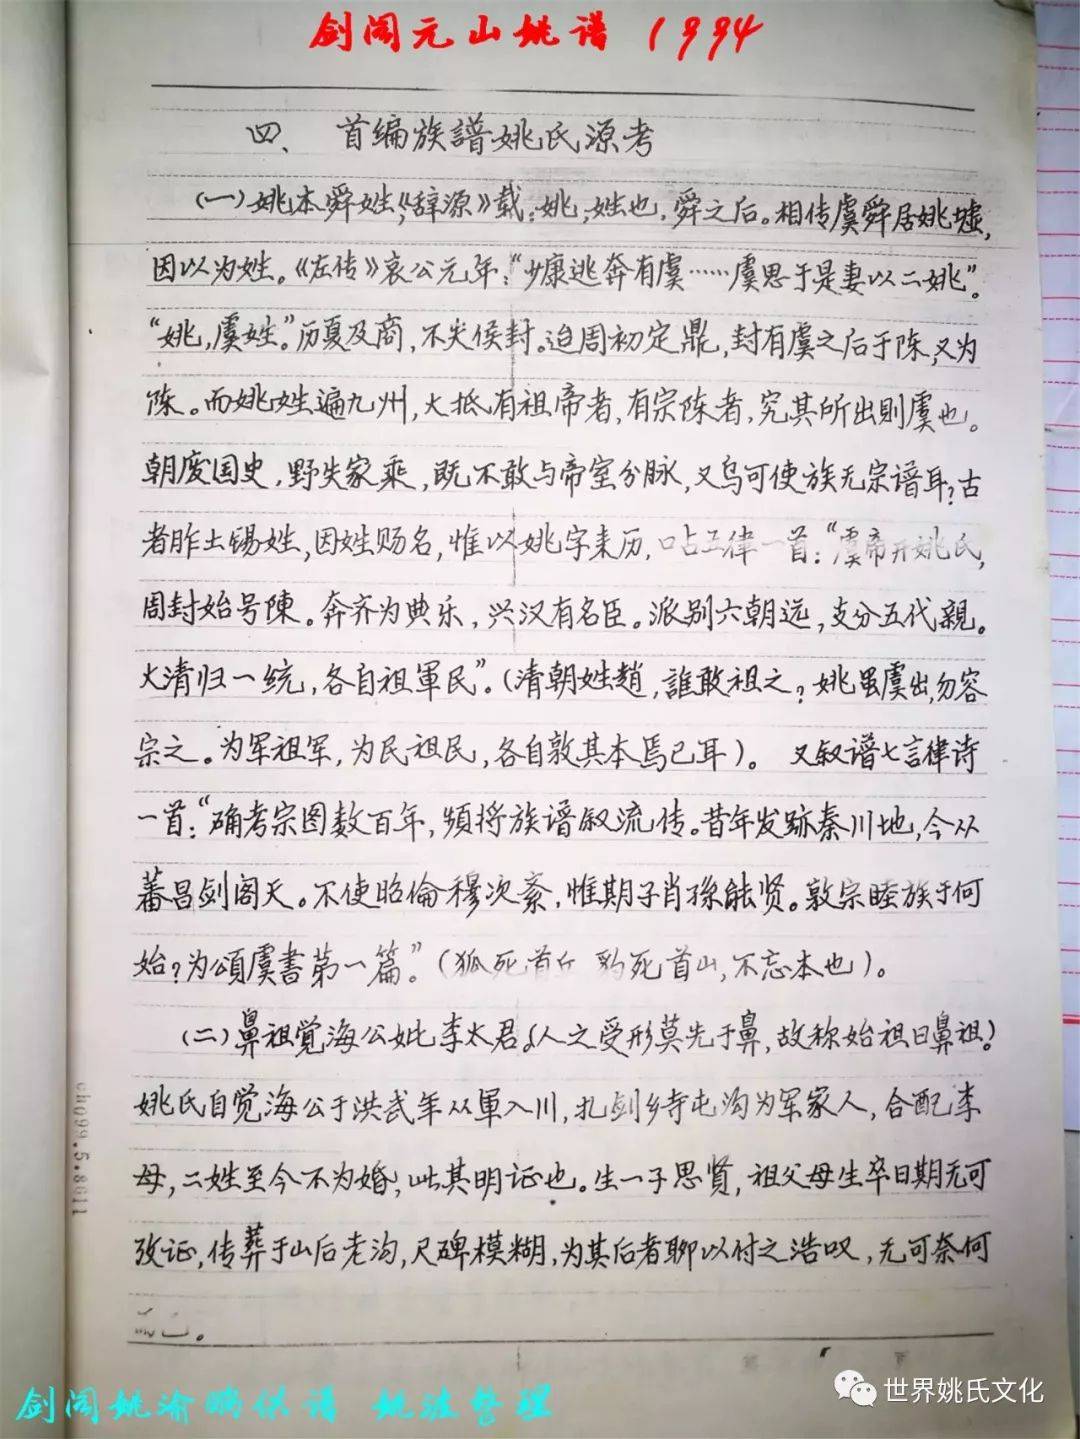 剑阁元山姚谱 1994
四、 首编族譜姚氏源考
(一)姚本舜姓,《辞源》载:姚,姓也,舜之后。相传虞舜居姚墟,
因以为姓。《左传》哀公元年:“少康逃奔有虞……虞思于是妻以二姚”。
“姚,虞姓。”历夏及商,不失侯封。迨周初定鼎,封有虞之后于陈,又为
陈。而姚姓遍九州,大抵有祖帝者,有宗陈者,究其所出則虞也。
朝废国史,野失家乘,既不敢与帝室分脉,又乌可使族无宗谱耳?古
者胙土锡姓,因姓赐名,惟以姚字来历,口占五律一首:“虞帝开姚氏,
周封始号陳。奔齐为典乐,兴汉有名臣。派别六朝远,支分五代親。
大清归一統,各自祖軍民”。(清朝姓趙,誰敢祖之?姚虽虞出,勿容
宗之。为军祖军,为民祖民,各自敦其本焉已耳)。 又叙谱七言律诗
一首:“确考宗图数百年,頻将族譜叙流传。昔年发跡秦川地,今从
蕃昌剑阁天。不使昭倫穆次紊,惟期子肖孫能贤。敦宗睦族于何
始?为頌虞書第一篇。”(狐死首丘 豹死首山,不忘本也)。
(二)鼻祖觉海公妣李太君。(人之受形莫先于鼻,故称始祖曰鼻祖)
姚氏自觉海公于洪武年从軍入川,扎剑乡寺屯沟为军家人,合配李
母,二姓至今不为婚,此其明证也。生一子思贤,祖父母生卒日期无可
攷证,传葬于山后老沟,尺碑模糊,为其后者聊以付之浩叹,无可奈何
而已。
cho99.5.8611
剑阁姚渝 供谱 姚法整理
世界姚氏文化